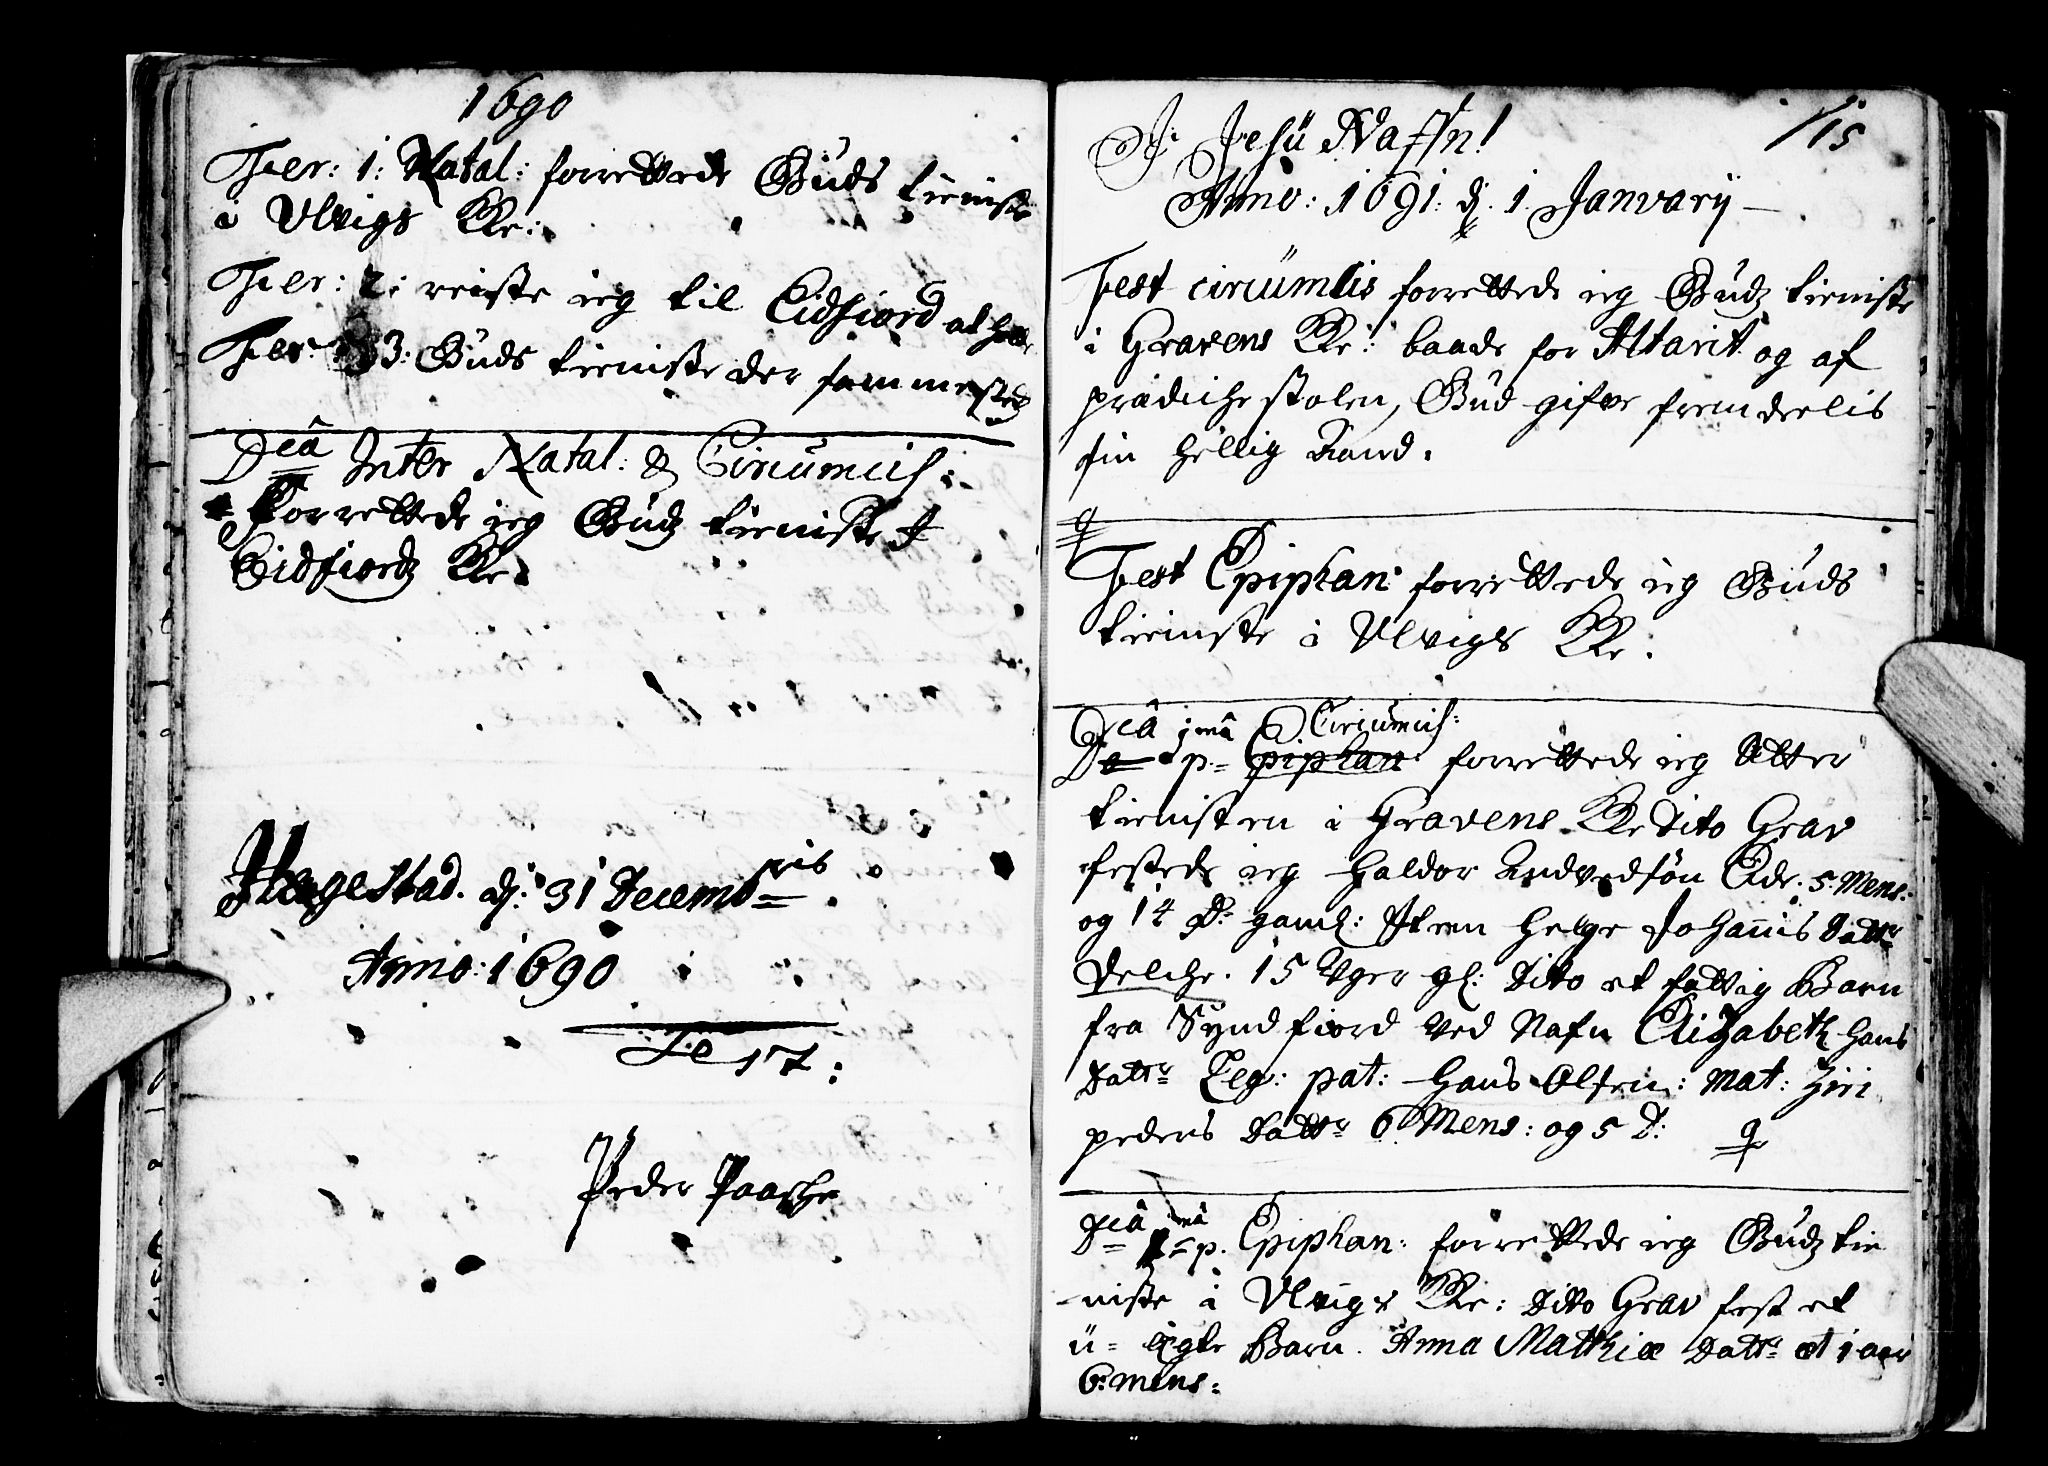 1690
Fer: 1: Natal: forrettede Guds tieniste
i Ulvigs Kr:
Fer: 2: reiste ieg til Eidfiord at holde
Fer: 3: Guds tieniste der sammested
Dcâ Inter Natal: & Circumcis:
Forrettede ieg Gudz tieniste I
Eidfiordz Kr:
Hægestad. dj: 31 Decembris
Anno: 1690
Test:
Peder Paasche
115
J. Jesu Naffn!
Anno: 1691: dj. 1. Januarij
Fest circumcis forrettede ieg Gudz tieniste
i Gravens Kr: baade for Altarit og af
prædichestolen, Gud gifve fremdeelis
sin hellig Aand.
Fest Epiphan: forrettede ieg Guds
tieniste i Ulvigs Kr:
Dcâ 1mâ Circumcis:
De p. Epiphan forrettede ieg Otte
tienisten i Gravens Kr dito Grav
festede ieg Haldor Andvedsøn Æde. 5. Mens:
og 14 D: gaml: Item Helge Johannis Dattr
Velche. 15 Uger gl: Dito et fattig Barn
fra Syndfiord ved Nafn Elizabeth Hans
Dattr Leg: pat: Hans Olsen: mat: Ziri
peders Dattr 6 Mens: og 5 D:
Dcâ 1mâ p. Epiphan: forrettede ieg Gudz tie
niste i Ulvigs Kr: dito Grav fest et
u= ægte Barn. Anna Matthiæ Dattr et 1 aar
6: mens: